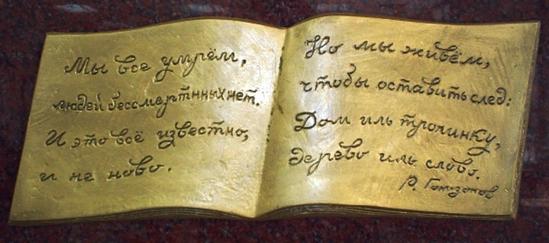 Мы все умрём,
людей бессмертных нет.
И это всё известно,
и не ново.
Но мы живём,
чтобы оставить след:
Дом иль тропинку,
дерево иль слово.
Р. Гамзатов